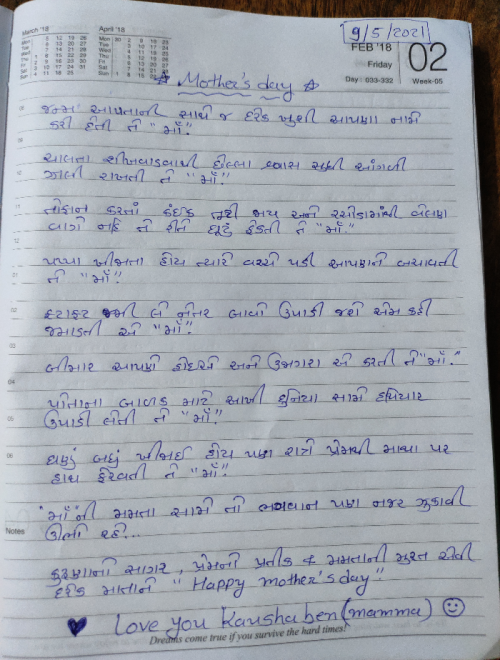 March '18
April '18
9/5/2021
FEB '18
Friday
02
Day : 033-332
Week-05
☆ Mother's day ☆
જન્મ આપતાની સાથે જ દરેક ખુશી આપણા નામે
કરી દેતી તે "માઁ."
ચાલતા શીખવાડવાથી છેલ્લા શ્વાસ સુધી આંગળી
ઝાલી રાખતી તે "માઁ."
તોફાન કરતાં કંઈક તૂટી જાય અને રસોડામાંથી વેલણ
વાગે નહિ તે રીતે છૂટું ફેંકતી તે "માઁ."
પપ્પા ખીજાતા હોય ત્યારે વચ્ચે પડી આપણને બચાવતી
તે "માઁ."
ફટાફટ જમી લે નહિતર બાવો ઉપાડી જશે એમ કહી
જમાડતી એ "માઁ."
બીમાર આપણે હોઇએ અને ઉજાગરા એ કરતી તે "માઁ."
પોતાના બાળક માટે આખી દુનિયા સામે હથિયાર
ઉપાડી લેતી તે "માઁ."
ઘણું બધું ખીજાઈ હોય પણ રાત્રે પ્રેમથી માથા પર
હાથ ફેરવતી તે "માઁ."
"માઁ"ની મમતા સામે તો ભગવાન પણ નજર ઝુકાવી
Notes
ઊભો રહે...
કરુણાનો સાગર, પ્રેમની પ્રતીક & મમતાની મુરત એવી
દરેક માતાને "Happy mother's day."
♥ love you Kausha ben (mamma) ☺
Dreams come true if you survive the hard times!